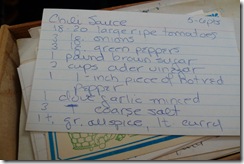 Chili Sauce 5-cups
18-20 large ripe tomatoes
3 lg. onions
3 lg. green peppers
1 pound brown sugar
3 cups cider vinegar
1 1-inch piece of hot red
pepper
1 clove garlic minced
3 coarse salt
1 t. gr. allspice, 1t curry